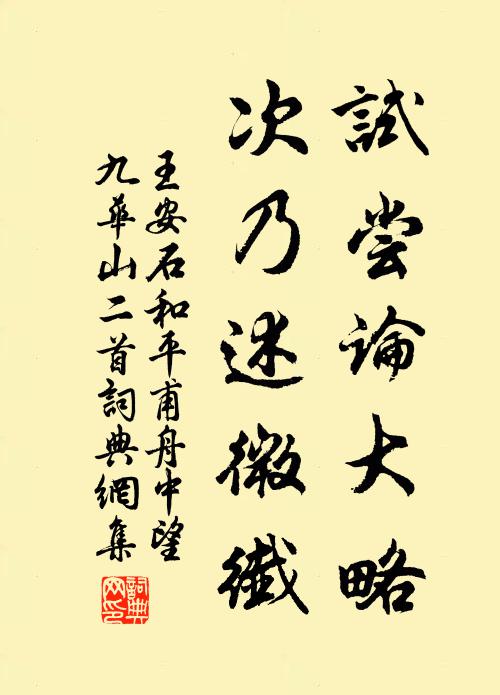 試尝論大略
次乃述微纖
王安石和平甫舟中望
九華山二首詞典網集
詞典